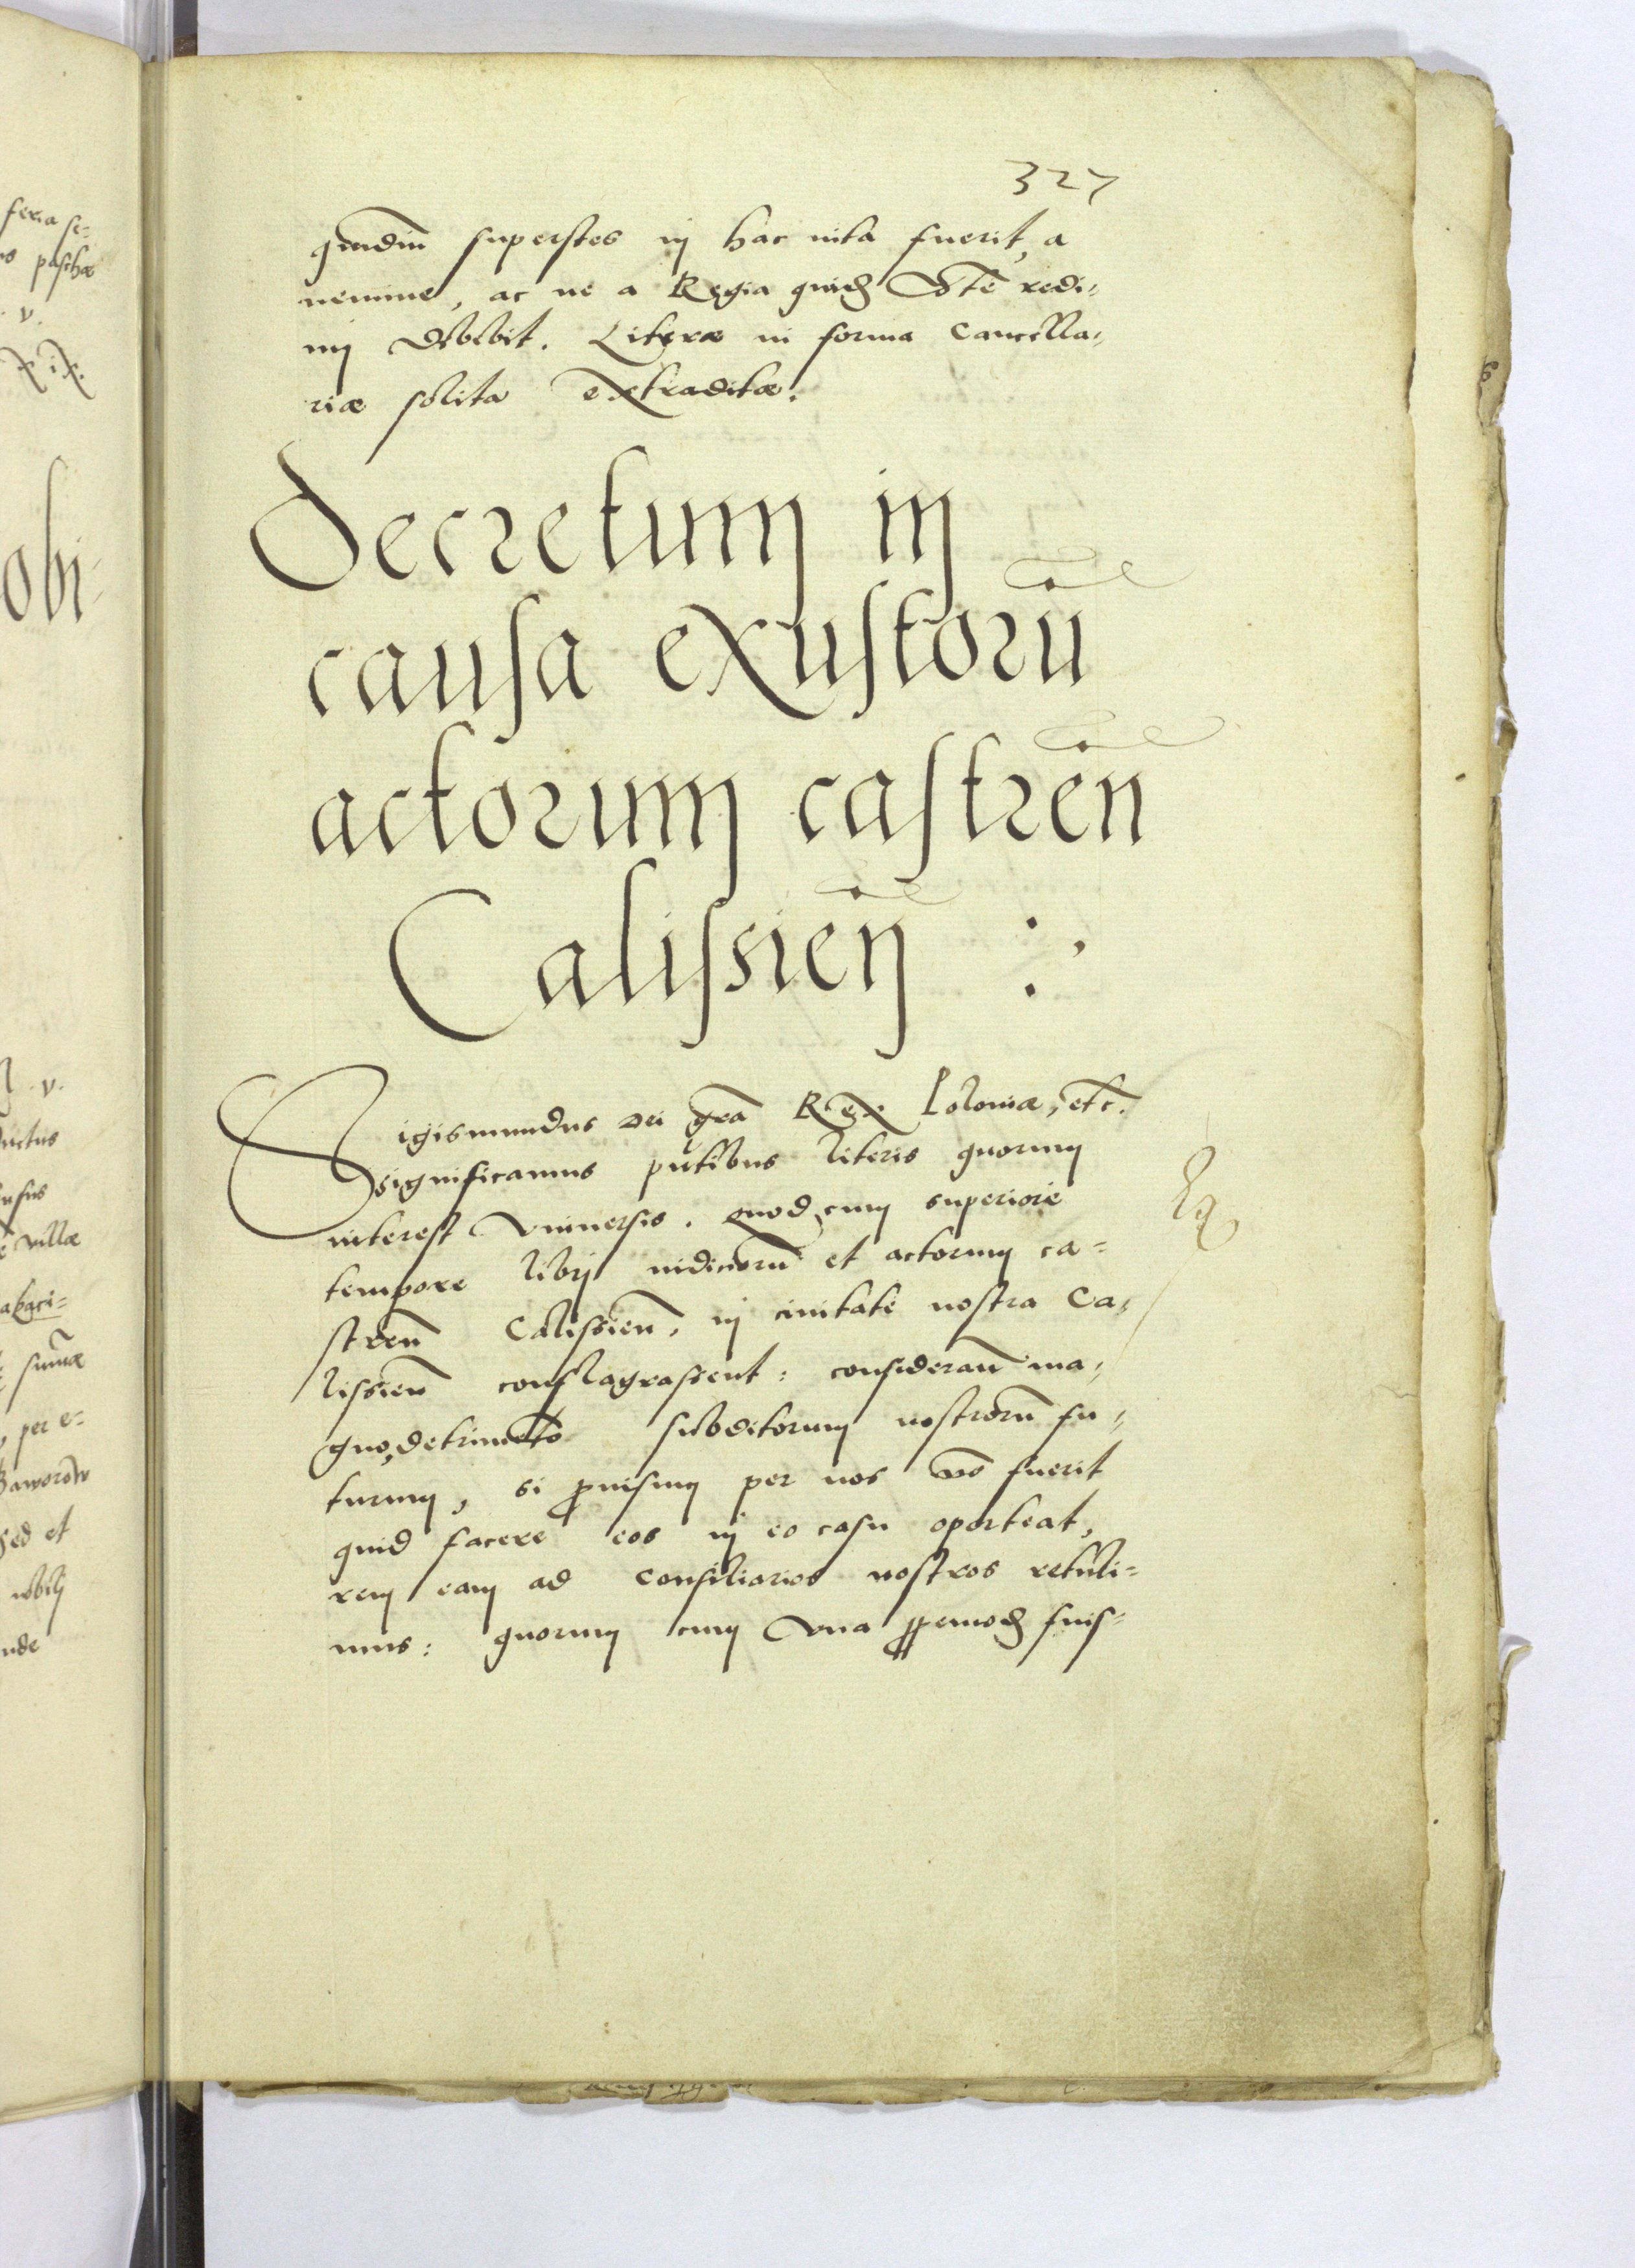 327
quadiu superstes in hac vita fuerit, a
nemine, ac ne a Regia quidē Mte redi-
mi debebit. Literæ in forma Cancella-
riæ solita extraditæ.
Decretum in
causa exustorū
actorum castreñ
Calissieñ :
Sigismundus dei gra̅ Rex Poloniæ, etc.
significamus pn̄tibus literis quorum
interest vniuersis. Quod cum superiore
tempore libri iudiciorū et actorum ca=
streñ Calissieñ, in ciuitate nostra Ca-
lissieñ conflagrassent: considerañ ma-
gno detrimēto subditorum nostrorū fu-
turum, si prouisum per nos nō fuerit
quid facere eos in eo casu oporteat,
rem eam ad Consiliarios nostros retuli=
mus: quorum cum vna ppemodū fuis=
feria se=
pascha
.v.
xix.
obi-
.v.
villæ
sum̄æ
per e=
Baworow
sed et
nobilj
nde